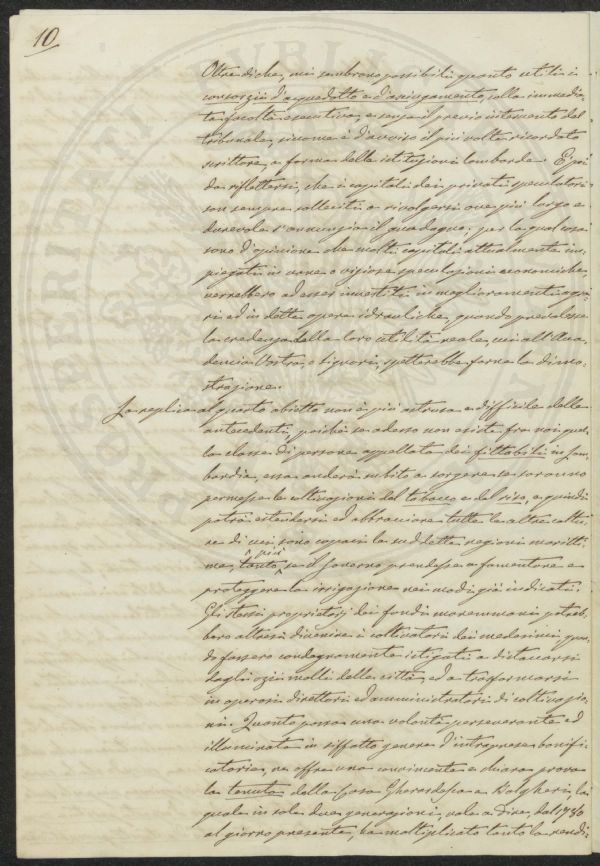 10
Oltre di che, mi sembrano possibili quanto utili i
consorzii d'acquedotto e d'asciugamento, colla immedia-
ta facoltà esecutiva, e senza il previo intervento del
tribunale, siccome è d'avviso il più volte ricordato
scrittore, a forma delle istituzioni lombarde. È poi
da riflettersi, che i capitali dei privati speculatori
son sempre solleciti a rivolgersi ove più largo e
durevole s'annunzia il guadagno; per la qual cosa
sono d'opinione che molti capitali attualmente im-
piegati in vane o viziose speculazioni economiche,
verrebbero ad esser investiti in miglioramenti agra-
ri ed in dette opere idrauliche, quando prevalesse
la credenza della loro utilità reale, cui all'Acca-
demia Vostra, o Signori, spetterebbe farne la dimo-
strazione.
La replica al quarto obietto non è più astrusa e difficile delle
antecedenti, poichè se adesso non esiste fra noi quel-
la classe di persone appellata dei fittabili in Lom-
bardia, essa anderà subito a sorgere se saranno
permesse le coltivazioni del tabacco e del riso, e quindi
potrà estendersi ed abbracciare tutte le altre coltu-
re di cui sono capaci le suddette regioni maritti-
me, tanto più se il Governo prendesse a fomentare e
proteggere la irrigazione nei modi già indicati.
Gli stessi proprietarj dei fondi maremmani potreb-
bero altresì divenire i coltivatori dei medesimi, quan-
do fossero condegnamente istigati a distaccarsi
dagli ozii molli delle città, ed a trasformarsi
in operosi direttori ed amministratori di coltivazio-
ni. Quanto possa una volontà perseverante ed
illuminata in siffatto genere d'intraprese bonifi-
catorie, ne offre una convincente e chiara prova
la tenuta della Casa Gherardesca a Bolgheri, la
quale in sole due generazioni, vale a dire, dal 1780
al giorno presente, ha moltiplicato tanto la rendi-
PROSPERITATI PUBLICAE